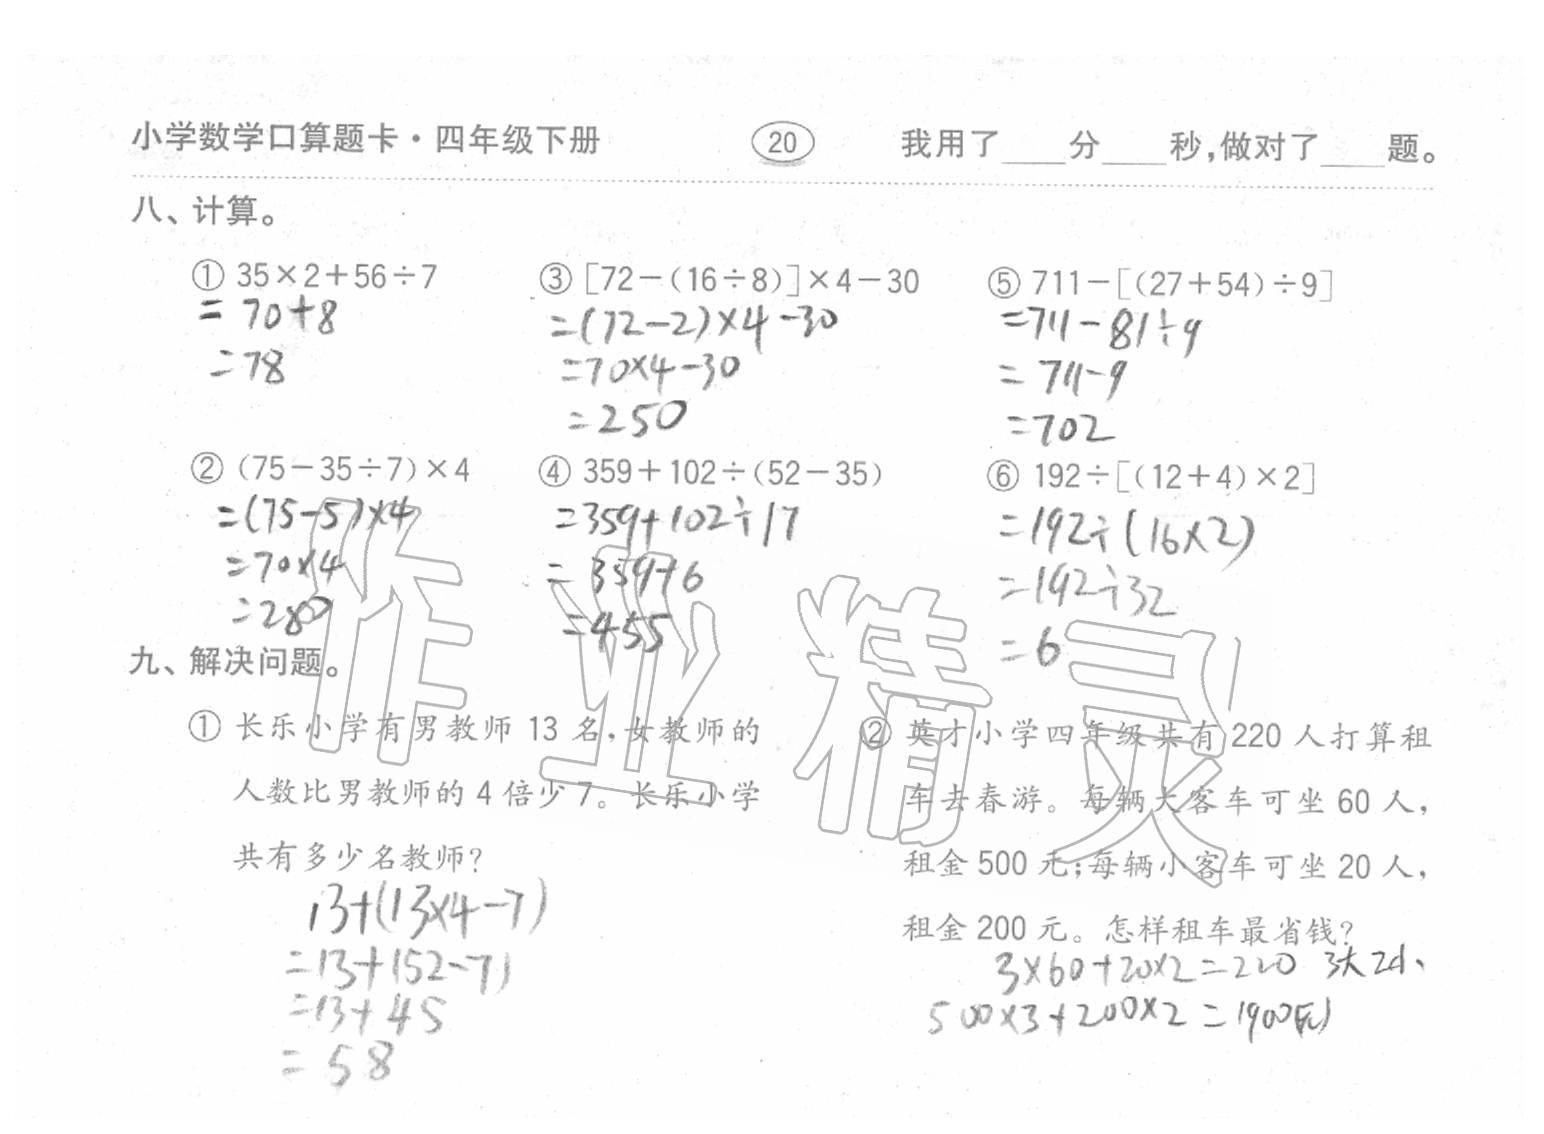 小学数学口算题卡·四年级下册 20 我用了____分____秒,做对了____题。
八、计算。
① 35×2+56÷7
=70+8
=78
② (75-35÷7)×4
=(75-5)×4
=70×4
=280
③ [72-(16÷8)]×4-30
=(72-2)×4-30
=70×4-30
=250
④ 359+102÷(52-35)
=359+102÷17
=359+6
=455
⑤ 711-[(27+54)÷9]
=711-81÷9
=711-9
=702
⑥ 192÷[(12+4)×2]
=192÷(16×2)
=192÷32
=6
九、解决问题。
① 长乐小学有男教师13名,女教师的
人数比男教师的4倍少7。长乐小学
共有多少名教师?
13+(13×4-7)
=13+(52-7)
=13+45
=58
② 英才小学四年级共有220人打算租
车去春游。每辆大客车可坐60人,
租金500元;每辆小客车可坐20人,
租金200元。怎样租车最省钱?
3×60+20×2=220 3大2小
500×3+200×2=1900(元)
作业精灵